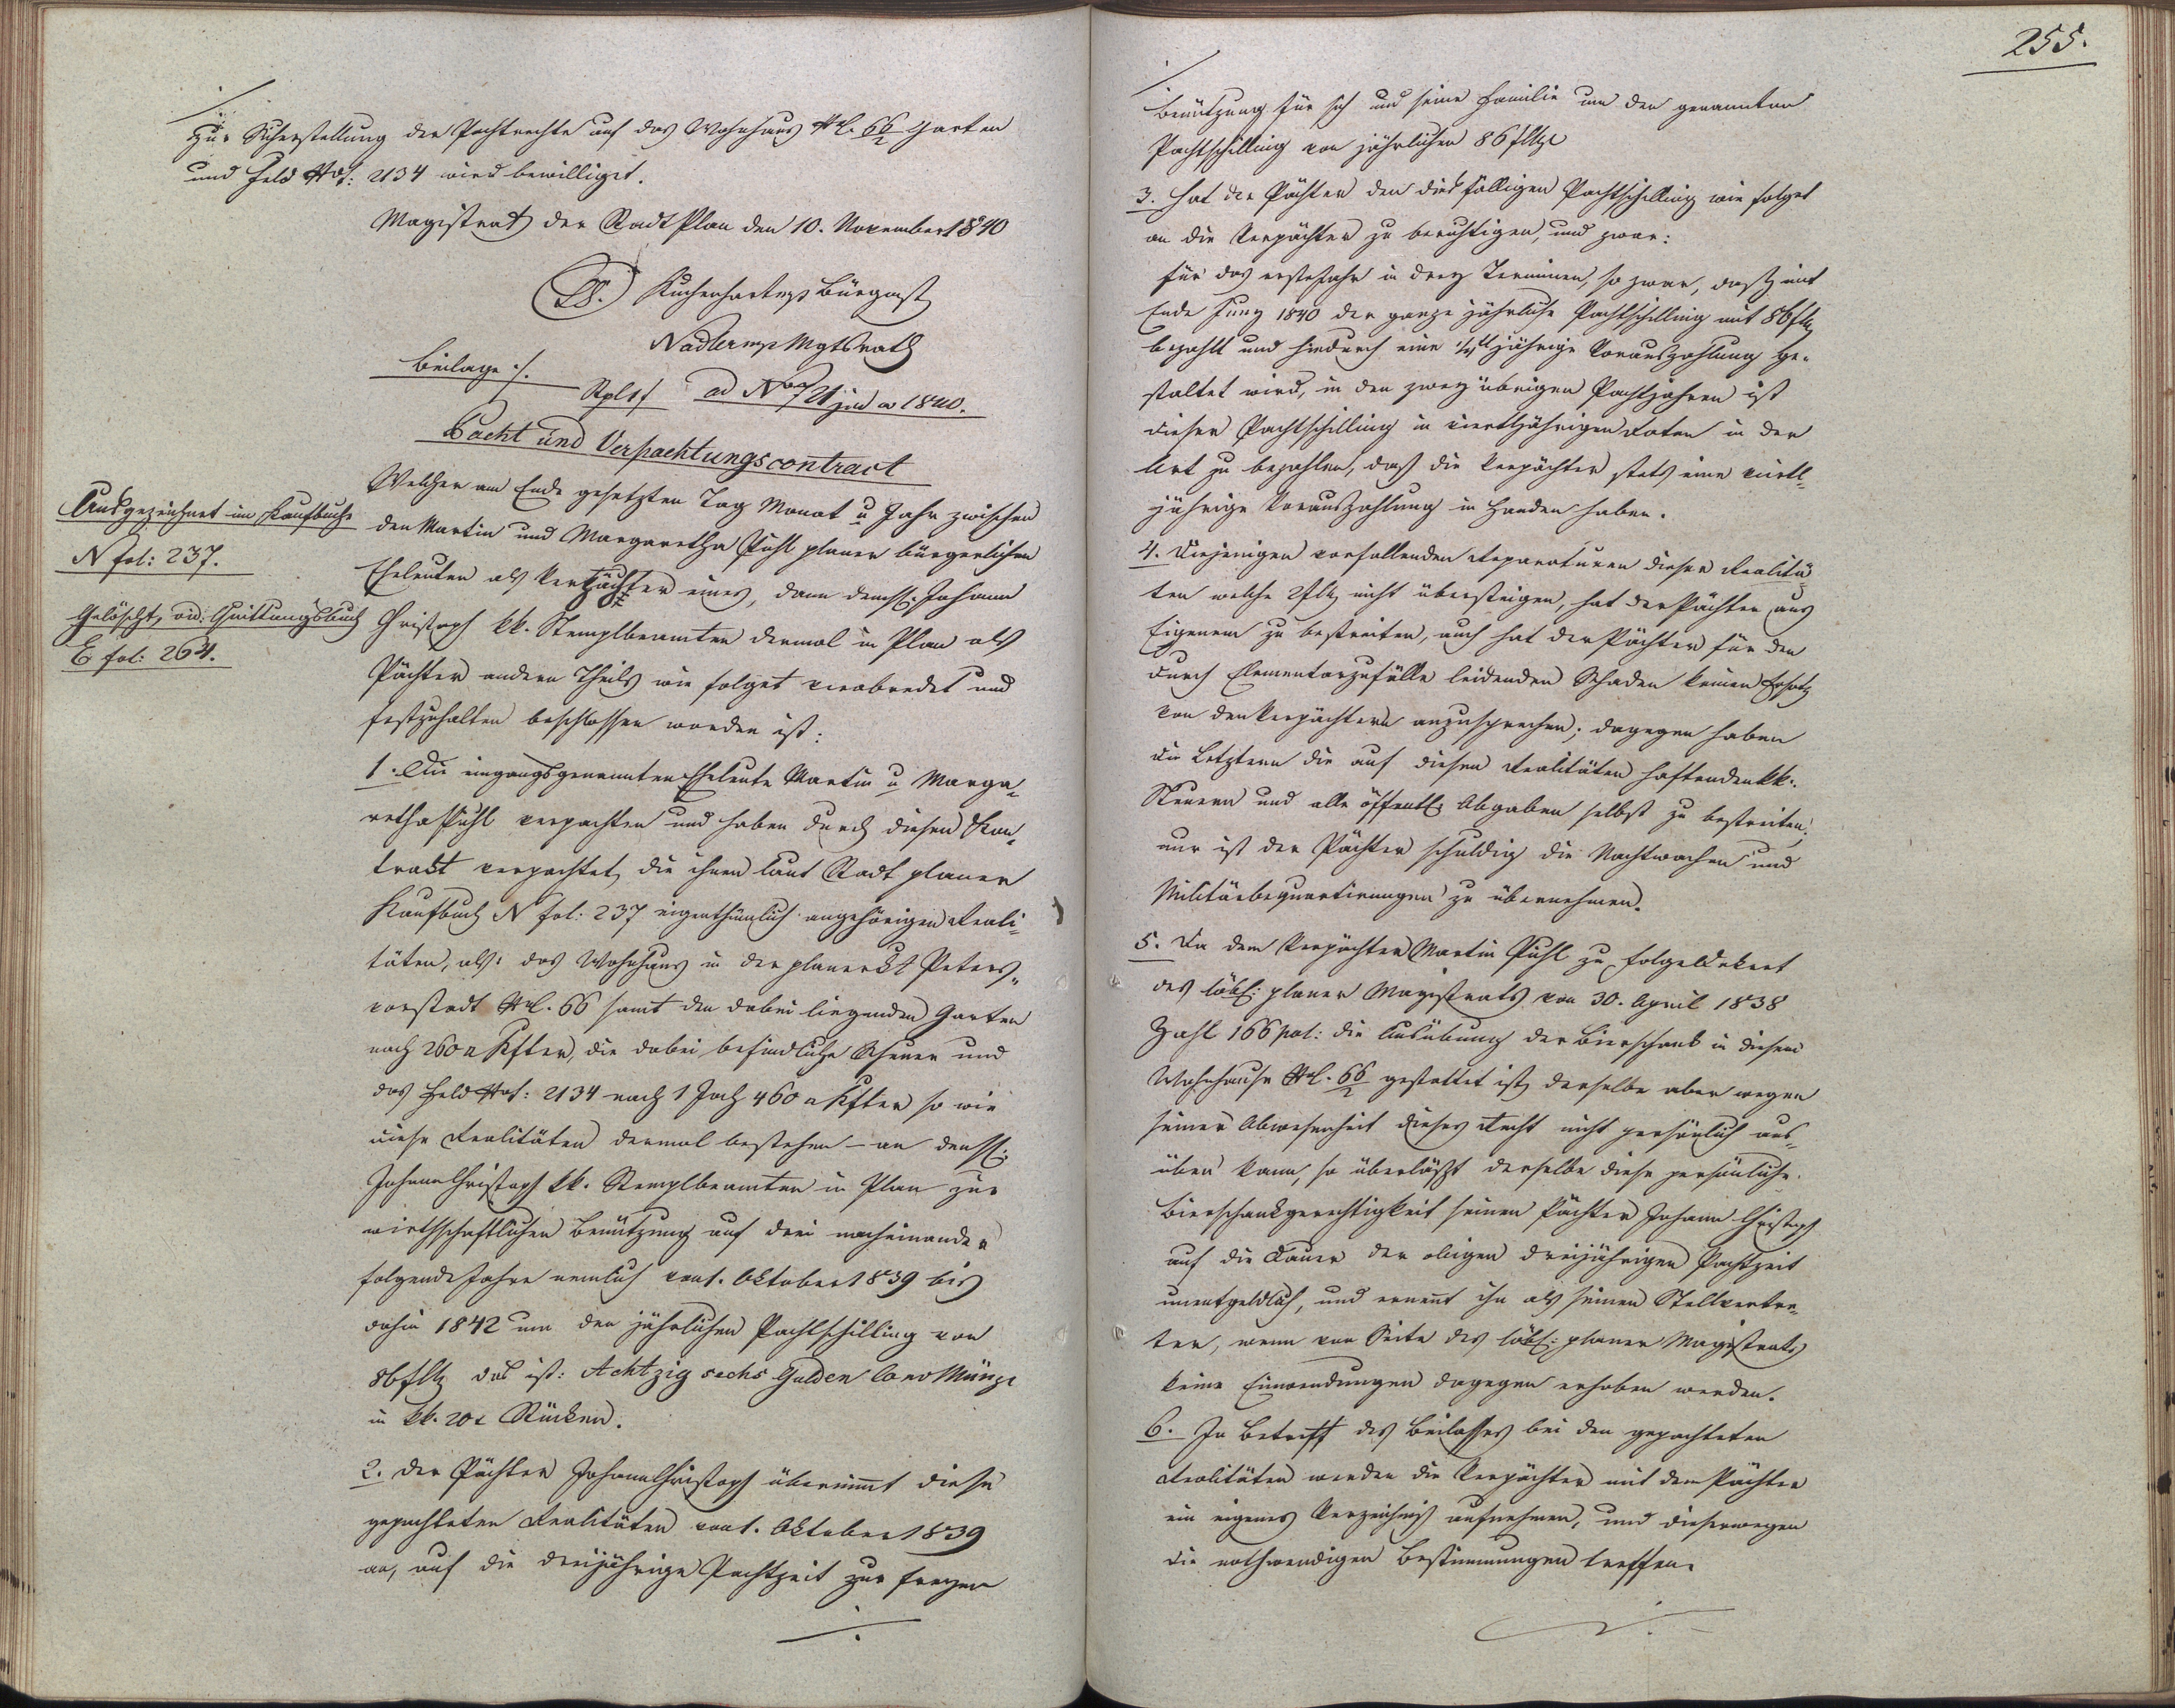 zur Sicherstellung der Pachtrechte auf das Wohnhaus NC. 66/2 Garten
und Feld Nro: 2134 wird bewilliget.
Magistrat der Stadt Plan den 10. November 1840
LS. Kuchenhart mp Bürgmst
Nadler mp Mgtsrath
Beilage ·/.
ad Nro 21 jud 1840.
Pacht und Verpachtungscontract
Ausgezeichnet im Kaufbuche
N fol: 237.
Gelöscht, vid: Quittungsbuch
E fol: 264.
Welcher am Ende gesetzten Tag Monat u Jahr zwischen
den Martin und Margaretha Puhl planer bürgerlichen
Eheleuten als Verpächter eines, dann dem H: Johann
Christoph kk. Stemplbeamten dermal in Plan als
Pächter andern Theils wie folget verabredet und
festzuhalten beschlossen worden ist:
1. Die eingangsgenannten Eheleute Martin u Marga„
retha Puhl verpachten und haben durch diesen Kon„
trakt verpachtet, die ihnen laut Stadt planer
Kaufbuch N fol: 237 eigenthümlich angehörigen Reali„
täten, als: das Wohnhaus in der planer St Peters„
vorstadt NC. 66 samt den dabei liegenden Garten
nach 260 □ Kfter, die dabei befindliche Scheuer und
das Feld Nro: 2134 nach 1 Joch 460 □ Kfter so wie
diese Realitäten dermal bestehen – an den H:
Johann Christoph kk. Stemplbeamten in Plan zur
wirthschaftlichen Benützung auf drei nacheinander
folgende Jahre nemlich von 1. Oktober 1839 bis
dahin 1842 um den jährlichen Pachtschilling von
86 f CMz das ist: Achtzig sechs Gulden Conv Münze
in kk. 20r Stücken.
2. Der Pächter Johann Christoph übernimmt diese
gepachteten Realitäten von 1. Oktober 1839
an, auf die dreijährige Pachtzeit zur freyen
·/.
255.
Benützung für sich und seine Familie um den genannten
Pachtschilling von jährlichen 86 f CMze
3. Hat der Pächter den diesfälligen Pachtschilling wie folget
an die Verpächter zu berichtigen, und zwar:
für das erste Jahr in drey Terminen, so zwar, daß mit
Ende Juny 1840 der ganze jährliche Pachtschilling mit 86 f CMz
bezahlt und hiedurch eine 1/4tljährige Vorauszahlung ge„
staltet wird, in den zwey übrigen Pachtjahren ist
dieser Pachtschilling in viertljährigen Raten in der
Art zu bezahlen, daß die Verpächter stets eine viertl„
jährige Vorauszahlung in Handen haben.
4. Diejenigen vorfallenden Reparaturen dieser Realitä„
ten welche 2 f CMz nicht übersteigen, hat der Pächter aus
Eigenem zu bestreiten, auch hat der Pächter für den
durch Elementarzufälle leidenden Schaden keinen Ersatz
von den Verpächtern anzusprechen; dagegen haben
die Letztern die auf diesen Realitäten haftenden kk:
Steuern und alle öffentl: Abgaben selbst zu bestreiten;
nur ist der Pächter schuldig die Nachtwachen und
Militärbequartirungen zu übernehmen.
5. Da dem Verpächter Martin Puhl zu Folge Dekret
des löbl: planer Magistrats von 30. April 1838
Zahl 166 pol: die Ausübung der Bierschank in diesem
Wohnhause NC. 66/2 gestattet ist, derselbe aber wegen
seiner Abwesenheit dieses Recht nicht persönlich aus„
üben kann, so überläßt derselbe diese persönliche
Bierschankgerechtigkeit seinen Pächter Johann Christoph
auf die Dauer der obigen dreijährigen Pachtzeit
unentgeldlich, und ernennt ihn als seinen Stellvertre„
ter, wenn von Seite des löbl: planer Magistrats
keine Einwendungen dagegen erhoben werden.
6. In Betreff des Beilasses bei den gepachteten
Realitäten werden die Verpächter mit dem Pächter
ein eigenes Verzeichniß aufnehmen, und dieserwegen
die nothwendigen Bestimmungen treffen.
·/.